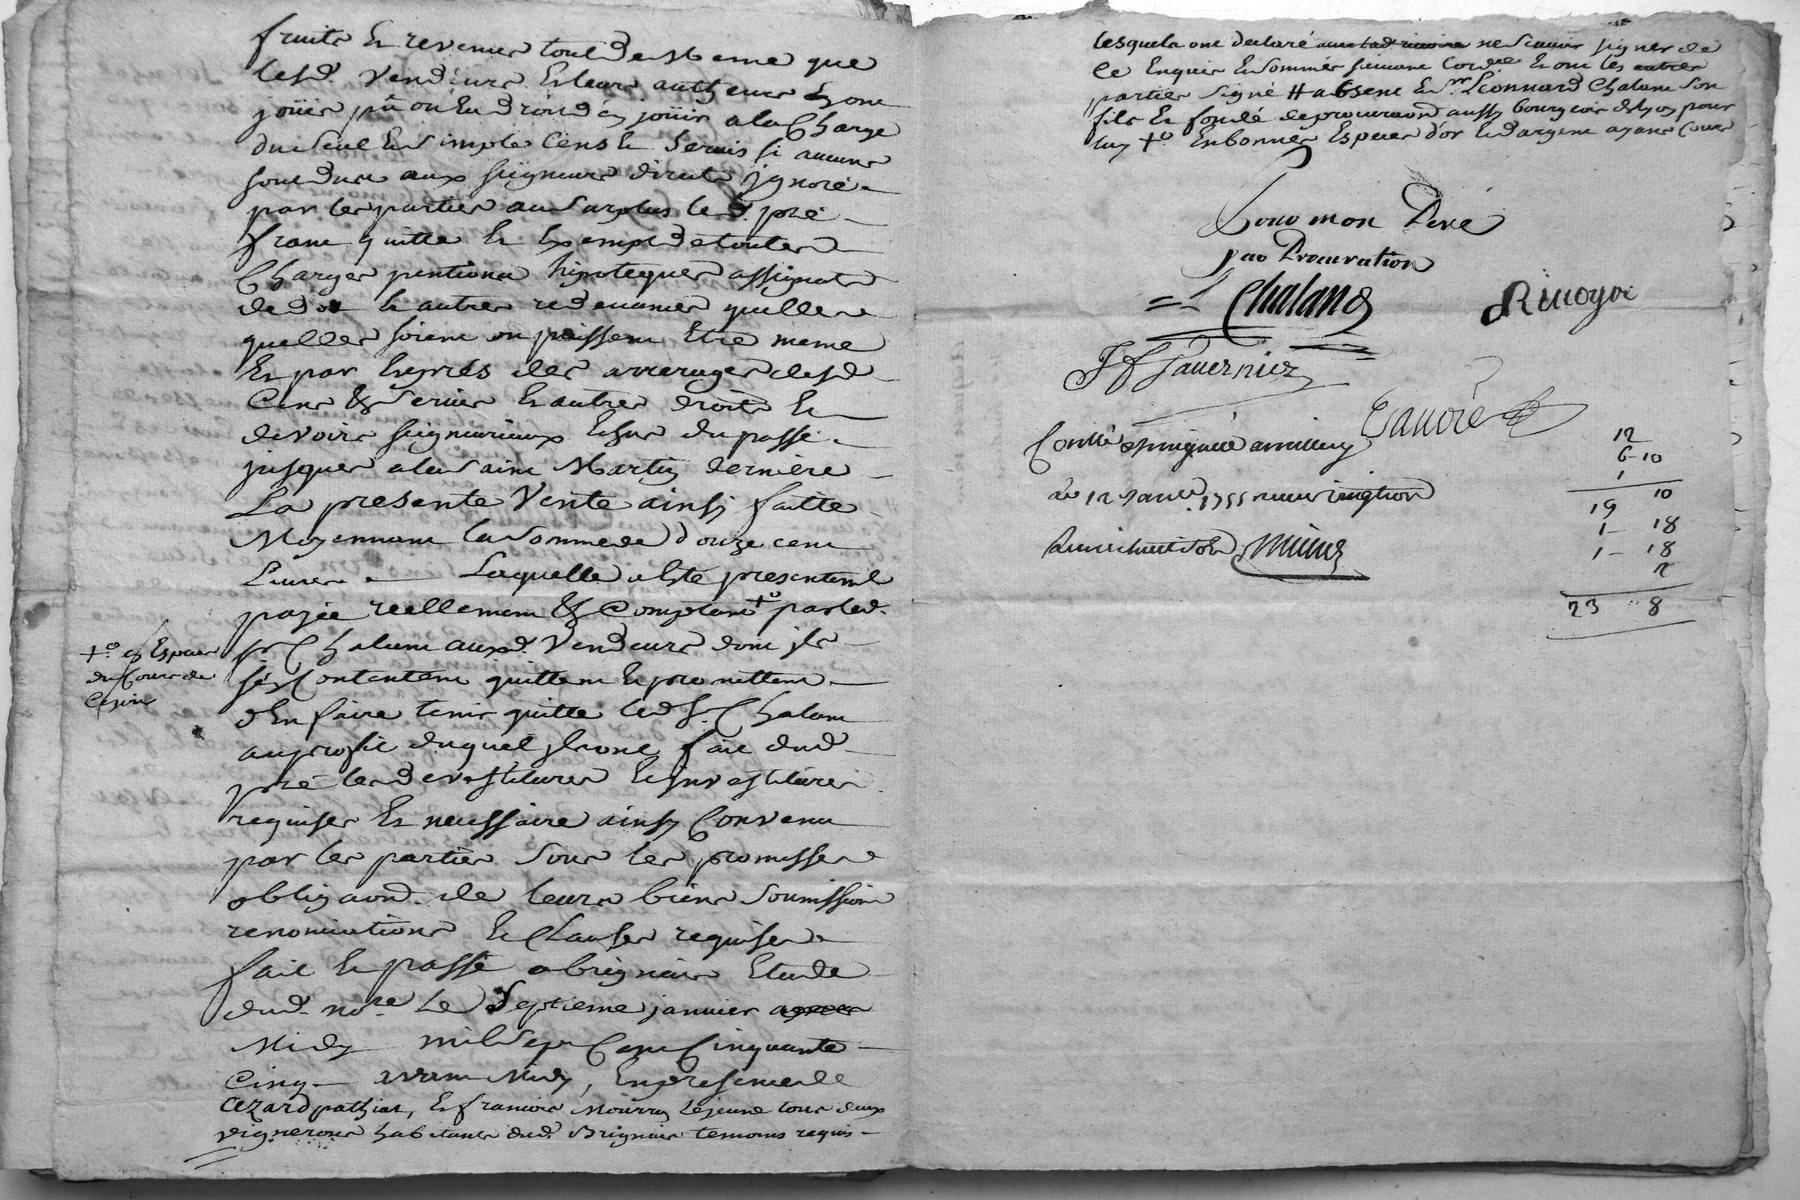 fruits Et revenus tout de Meme que
lesd. Vendeurs Et leurs autheurs En ont
joüis pû ou En droit d'En joüir a la Charge
du Seul Et Simple Cens Et Servis si aucuns
sont dues aux seigneurs directs ignoré
par les parties au Surplus led. pré
franc quitte Et Exempt de toutes
Charges pentions hipoteques assignats
de dot Et autres redevances quelles
quelles soient ou puissent Etre meme
Et par Exprés des arrerages desd
Cens & Servis Et autres droits Et
devoirs seigneuriaux Echus du passé
jusques a la Saint Martin derniere
La presente Vente ainsy faitte
Moyennant la Somme de douze cent
Livres Laquelle a Eté presentemt
payée reellement & Comptant +o par led.
sr Chalant auxd. Vendeurs dont ils
+o En Especes
du Cours de
Ce jour
se Contentent quittent Et promettent
d'En faire tenir quitte led Sr. Chalant
au profit duquel ils ont fait dud
pré les devestitures Et investitures
requises Et necessaires ainsy Convenu
par les parties Sous les promisses
obligaon. de leurs biens Soumissions
renonciations Et Clauses requises
fait Et passé a brignais Etude
dud. nore Le Septieme janvier
Midy mil Sept Cent Cinquante
Cinq avant Midy, En presence de
Cezard pathiat, Et francois Mourron le jeune tous deux
vignerons habitants dud. Brignais temoins requis
lesquels ont declaré ne Scavoir signer de
Ce Enquis Et Sommés suivant Lordce Et ont les
parties Signé H absent Et sr Leonnard Chalant Son
fils Et fondé de procuraon aussy bourgeois de Lyon pour
luy +o En bonnes Especes d'or Et d'argent ayant Cours
Pour mon Pere
par Procuration
L Chaland
Rivoyre
JF Tavernier
Conllé
Le 12 Janver. 1755
12
6-10
1
19 10
1- 18
1- 18
2
23 8